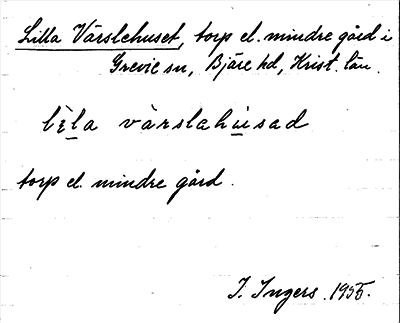 Lilla Värslehuset, torp el. mindre gård i
Grevie sn, Bjäre hd, Krist. län.
lìla vàrslahúsad
torp el. mindre gård.
I. Ingers. 1955.